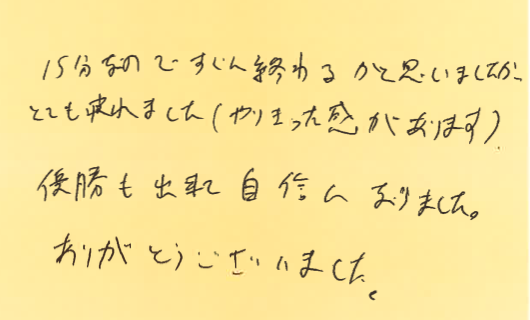 15分なのですぐに終わるかと思いましたが、
とても疲れました(やりきった感があります)。
優勝も出来て自信になりました。
ありがとうございました。